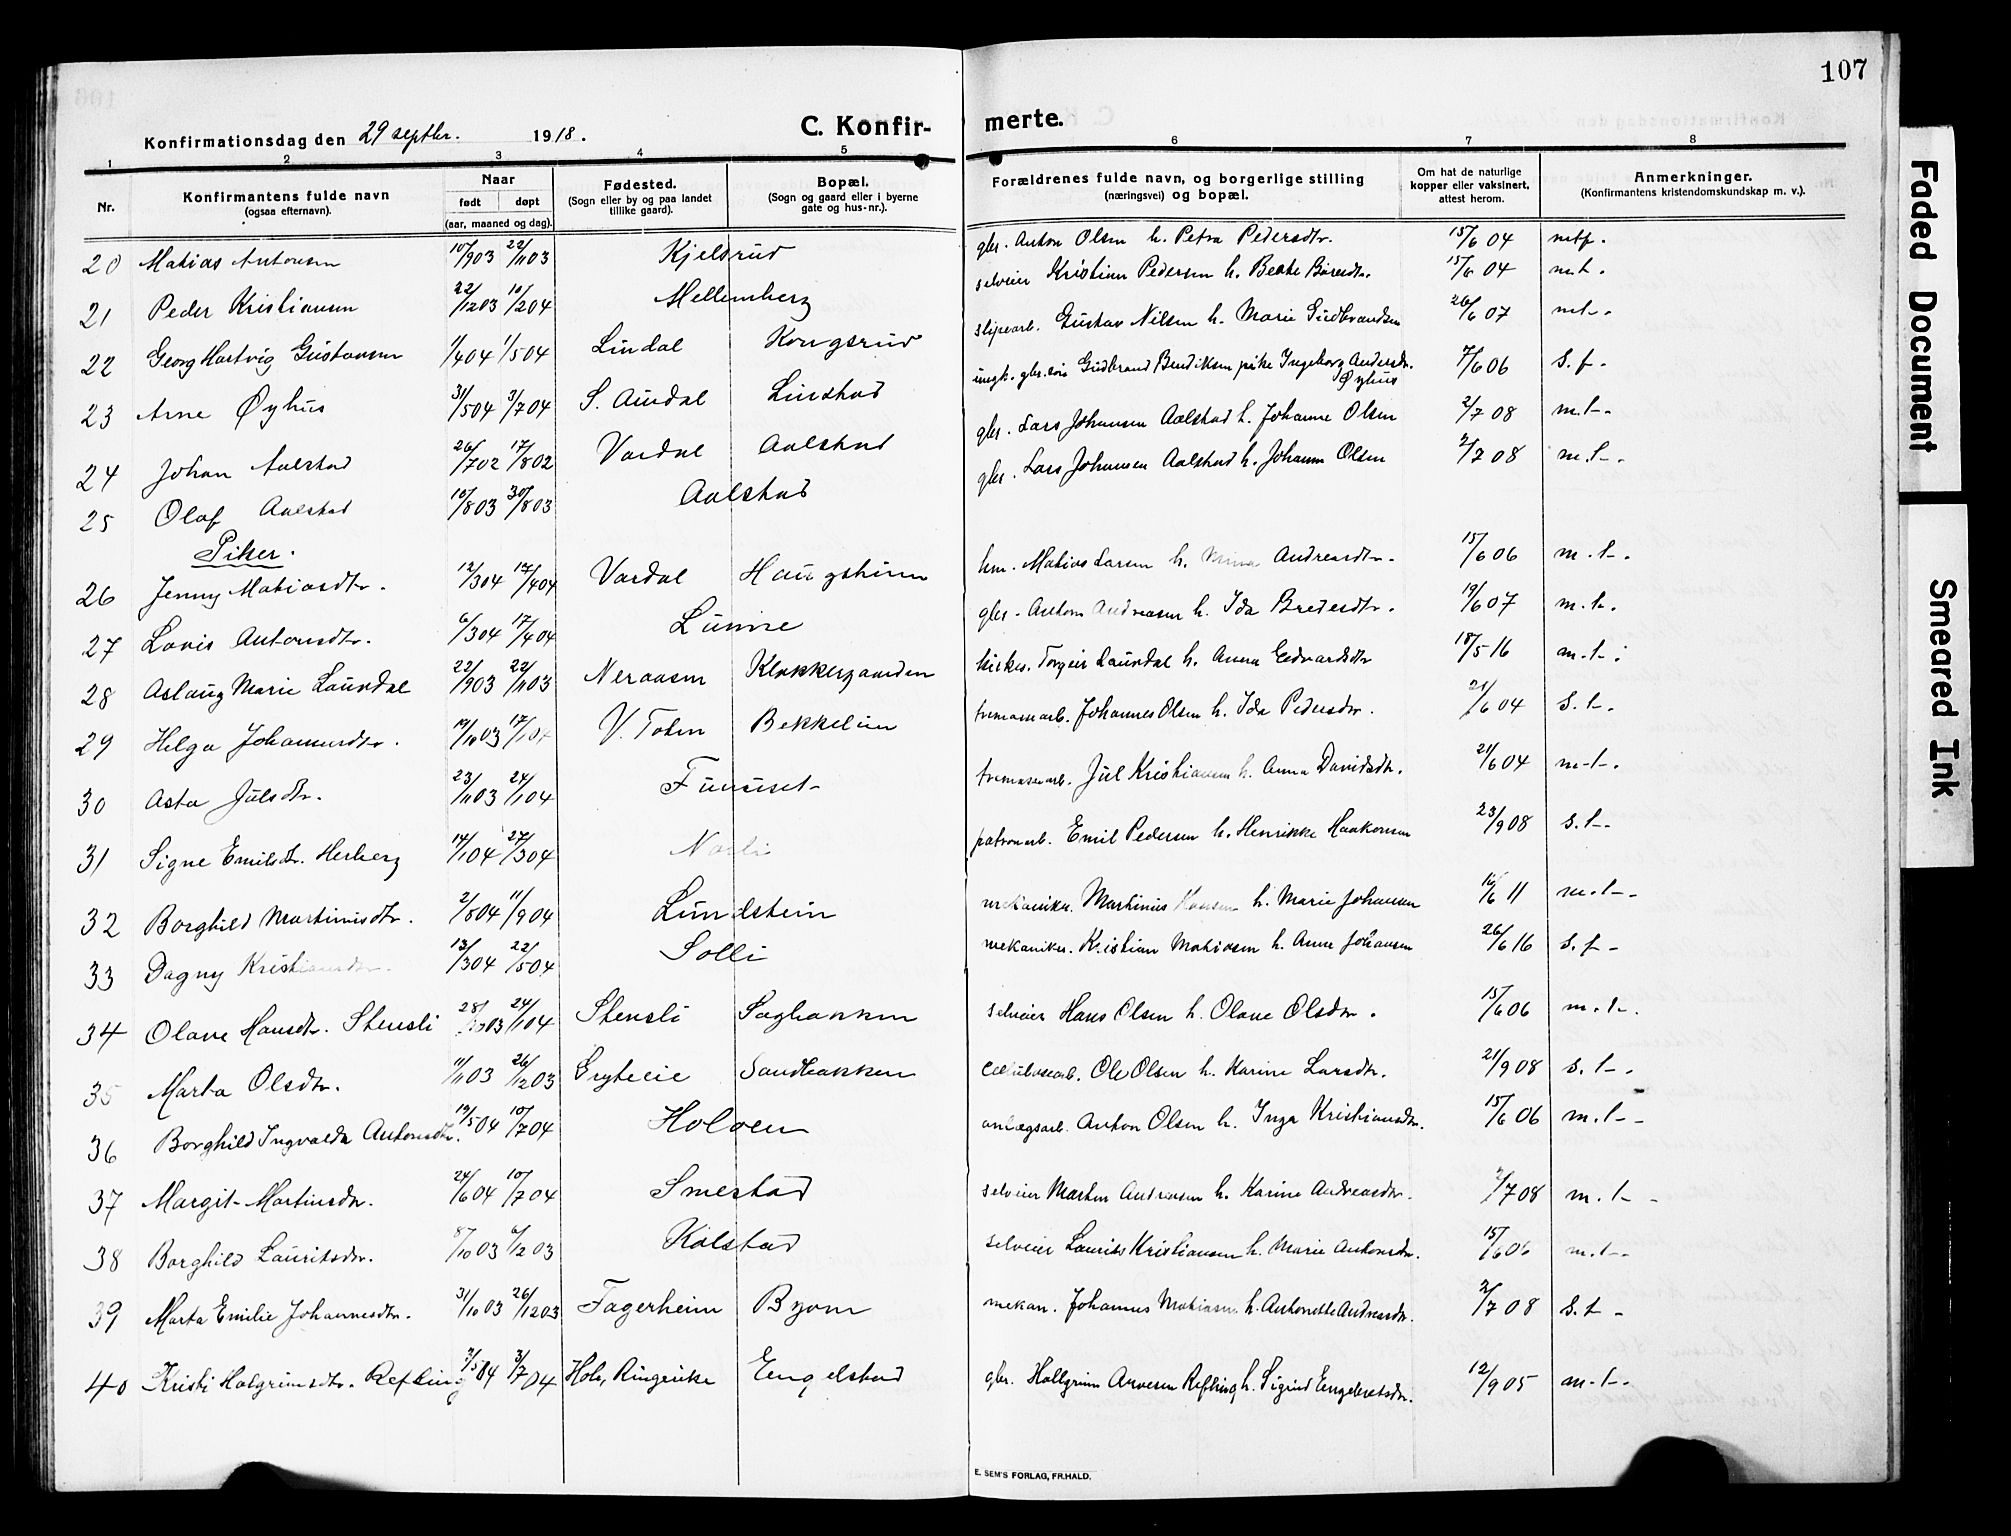 107
Konfirmationsdag den 29 septbr. 1918.
C. Konfirmerte.
1 2 3 4 5 6 7 8
Nr.
Konfirmantens fulde navn
(ogsaa efternavn).
Naar
født døpt
(aar, maaned og dag).
Fødested.
(Sogn eller by og paa landet
tillike gaard).
Bopæl.
(Sogn og gaard eller i byerne
gate og hus-nr.).
Forældrenes fulde navn, og borgerlige stilling
(næringsvei) og bopæl.
Om hat de naturlige
kopper eller vaksinert,
attest herom.
Anmerkninger.
(Konfirmantens kristendomskundskap m. v.).
20 Matias Antonsen 10/9 03 22/11 03 Kjelsrud gbr. Anton Olsen h. Petra Pedersdtr. 15/6 04 mtf.
21 Peder Kristiansen 22/12 03 10/2 04 Mellemberg selveier Kristian Pedersen h. Beate Børesdtr. 15/6 04 m.t.
22 Georg Hartvig Gustavsen 1/4 04 1/5 04 Lindal Kongsrud slipearb. Gustav Nilsen h. Marie Gudbrandsen 26/6 07 m.t.
23 Arne Øyhus 31/5 04 3/7 04 S. Aurdal Linstad ungk. gbr.søn Gudbrand Bendiksen pike Ingeborg Andersdtr. Øyhus 7/6 06 S.f.
24 Johan Aalstad 26/7 02 17/8 02 Vardal Aalstad gbr. Lars Johansen Aalstad h. Johanne Olsen 2/7 08 m.t.
25 Olaf Aalstad 10/8 03 30/8 03 Aalstad gbr. Lars Johansen Aalstad h. Johanne Olsen 2/7 08 m.t.
Piker.
26 Jenny Matiasdtr. 12/3 04 17/4 04 Vardal Haugstuen hm. Matias Larsen h. Andreasdtr. 15/6 06 m.t.
27 Lovis Antonsdtr. 6/3 04 17/4 04 Lunne gbr. Anton Andreasen h. Ida Bredesdtr. 19/6 07 m.t.
28 Aslaug Marie Laundal 22/9 03 22/11 03 Neraasen Klokkergaarden kirkes. Torgeir Laundal h. Anna Edvardsdtr 18/5 16 m.t.
29 Helga Johannesdtr. 19/10 03 17/1 04 V. Toten Bekkelien tremasearb. Johannes Olsen h. Ida Pedersdtr. 21/6 04 S.t.
30 Asta Julsdtr. 23/11 03 24/1 04 Furuset tremasearb. Jul Kristiansen h. Anna Davidsdtr. 21/6 04 m.t.
31 Signe Emilsdtr. Herberg 14/1 04 27/3 04 Norli patronarb. Emil Pedersen h. Henrikke Haakonsen 23/9 08 S.t.
32 Borghild Martinusdtr. 2/8 04 11/9 04 Lundstein mekaniker. Martinus Hansen h. Marie Johansen 16/6 11 m.t.
33 Dagny Kristiansdtr. 13/3 04 22/5 04 Solli mekaniker. Kristian Matiasen h. Anne Johansen 26/6 16 S.f.
34 Olave Hansdtr. Stensli 28/10 03 24/1 04 Stensli Sagbakken selveier Hans Olsen h. Olave Olsdtr. 15/6 06 m.t.
35 Marta Olsdtr. 11/11 03 26/12 03 Gryteeie Sandbakken Cellulosearb. Ole Olsen h. Karine Larsdtr. 21/9 08 S.t.
36 Borghild Ingvalda Antonsdtr. 19/5 04 10/7 04 Holoen anlægsarb. Anton Olsen h. Inga Kristiansdtr. 15/6 06 m.t.
37 Margit Martinsdtr. 24/6 04 10/7 04 Smestad selveier Martin Andreasen h. Karine Andreasdtr. 2/7 08 m.t.
38 Borghild Lauritsdtr. 8/10 03 6/12 03 Kolstad selveier Laurits Kristiansen h. Marie Antonsdtr. 15/6 06 m.t.
39 Marta Emilie Johannesdtr. 31/10 03 26/12 03 Fagerheim Byom mekan. Johannes Matiasen h. Antonette Andreasdtr. 2/7 08 S.t.
40 Kristi Halgrimsdtr. Refling 3/5 04 3/7 04 Hole, Ringerike Engelstad gbr. Hallgrim Arnesen Refling h. Sigrid Engebretsdtr. 12/9 05 m.t.
E. SEM'S FORLAG, FR.HALD.
Faded Document
Smeared Ink